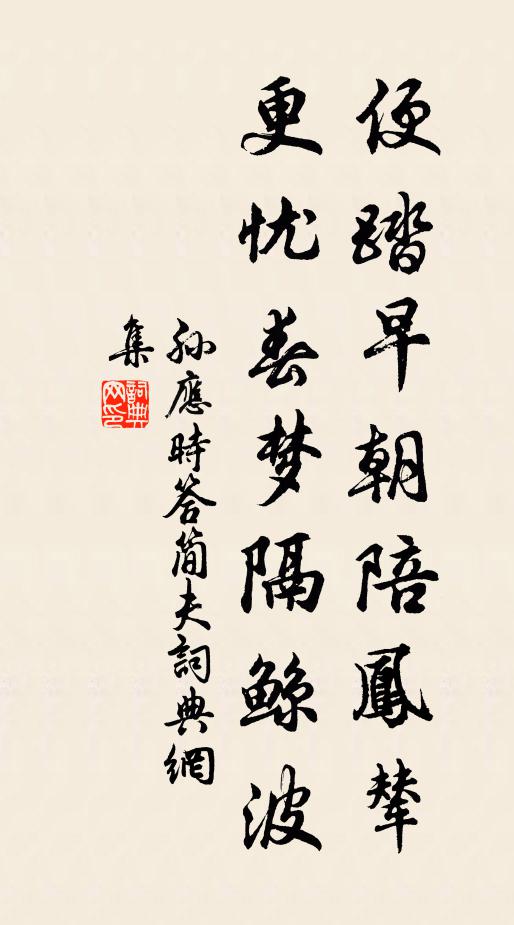 便踏早朝陪鳳輦
更忧春梦隔鲸波
孙應時答简夫詞典網
集
詞典網印